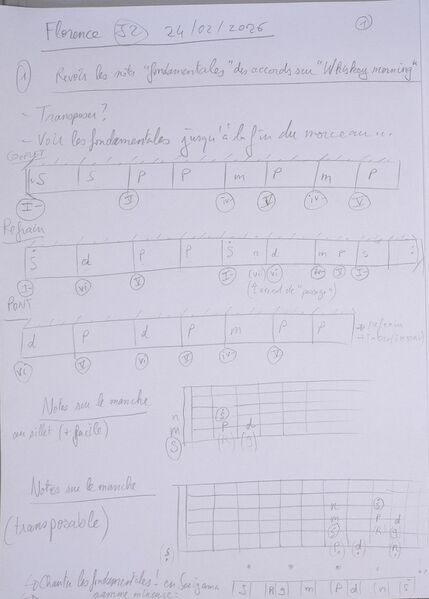 Florence S2 24/02/2026 1
1 Revoir les notes "fondamentales" des accords sur "Whiskey morning"
- Transposer?
- Voir les fondamentales jusqu'à la fin du morceau...
Couplet
S S P P m P m P
I- V iv- V iv- V
Refrain
Ṡ d P P Ṡ n d m P s
I- vi V V I- (vi) vi V I-
(accord de "passage")
PONT
d P d P m P P
vi V vi V iv- V
Notes sur le manche
au sillet (+ facile)
n S
m P d
S (R) (g)
Notes sur le manche
(transposable)
n S
m P d
↳ Chanter les fondamentales! en Sargama
gamme mineure:
S R g m P d n Ṡ